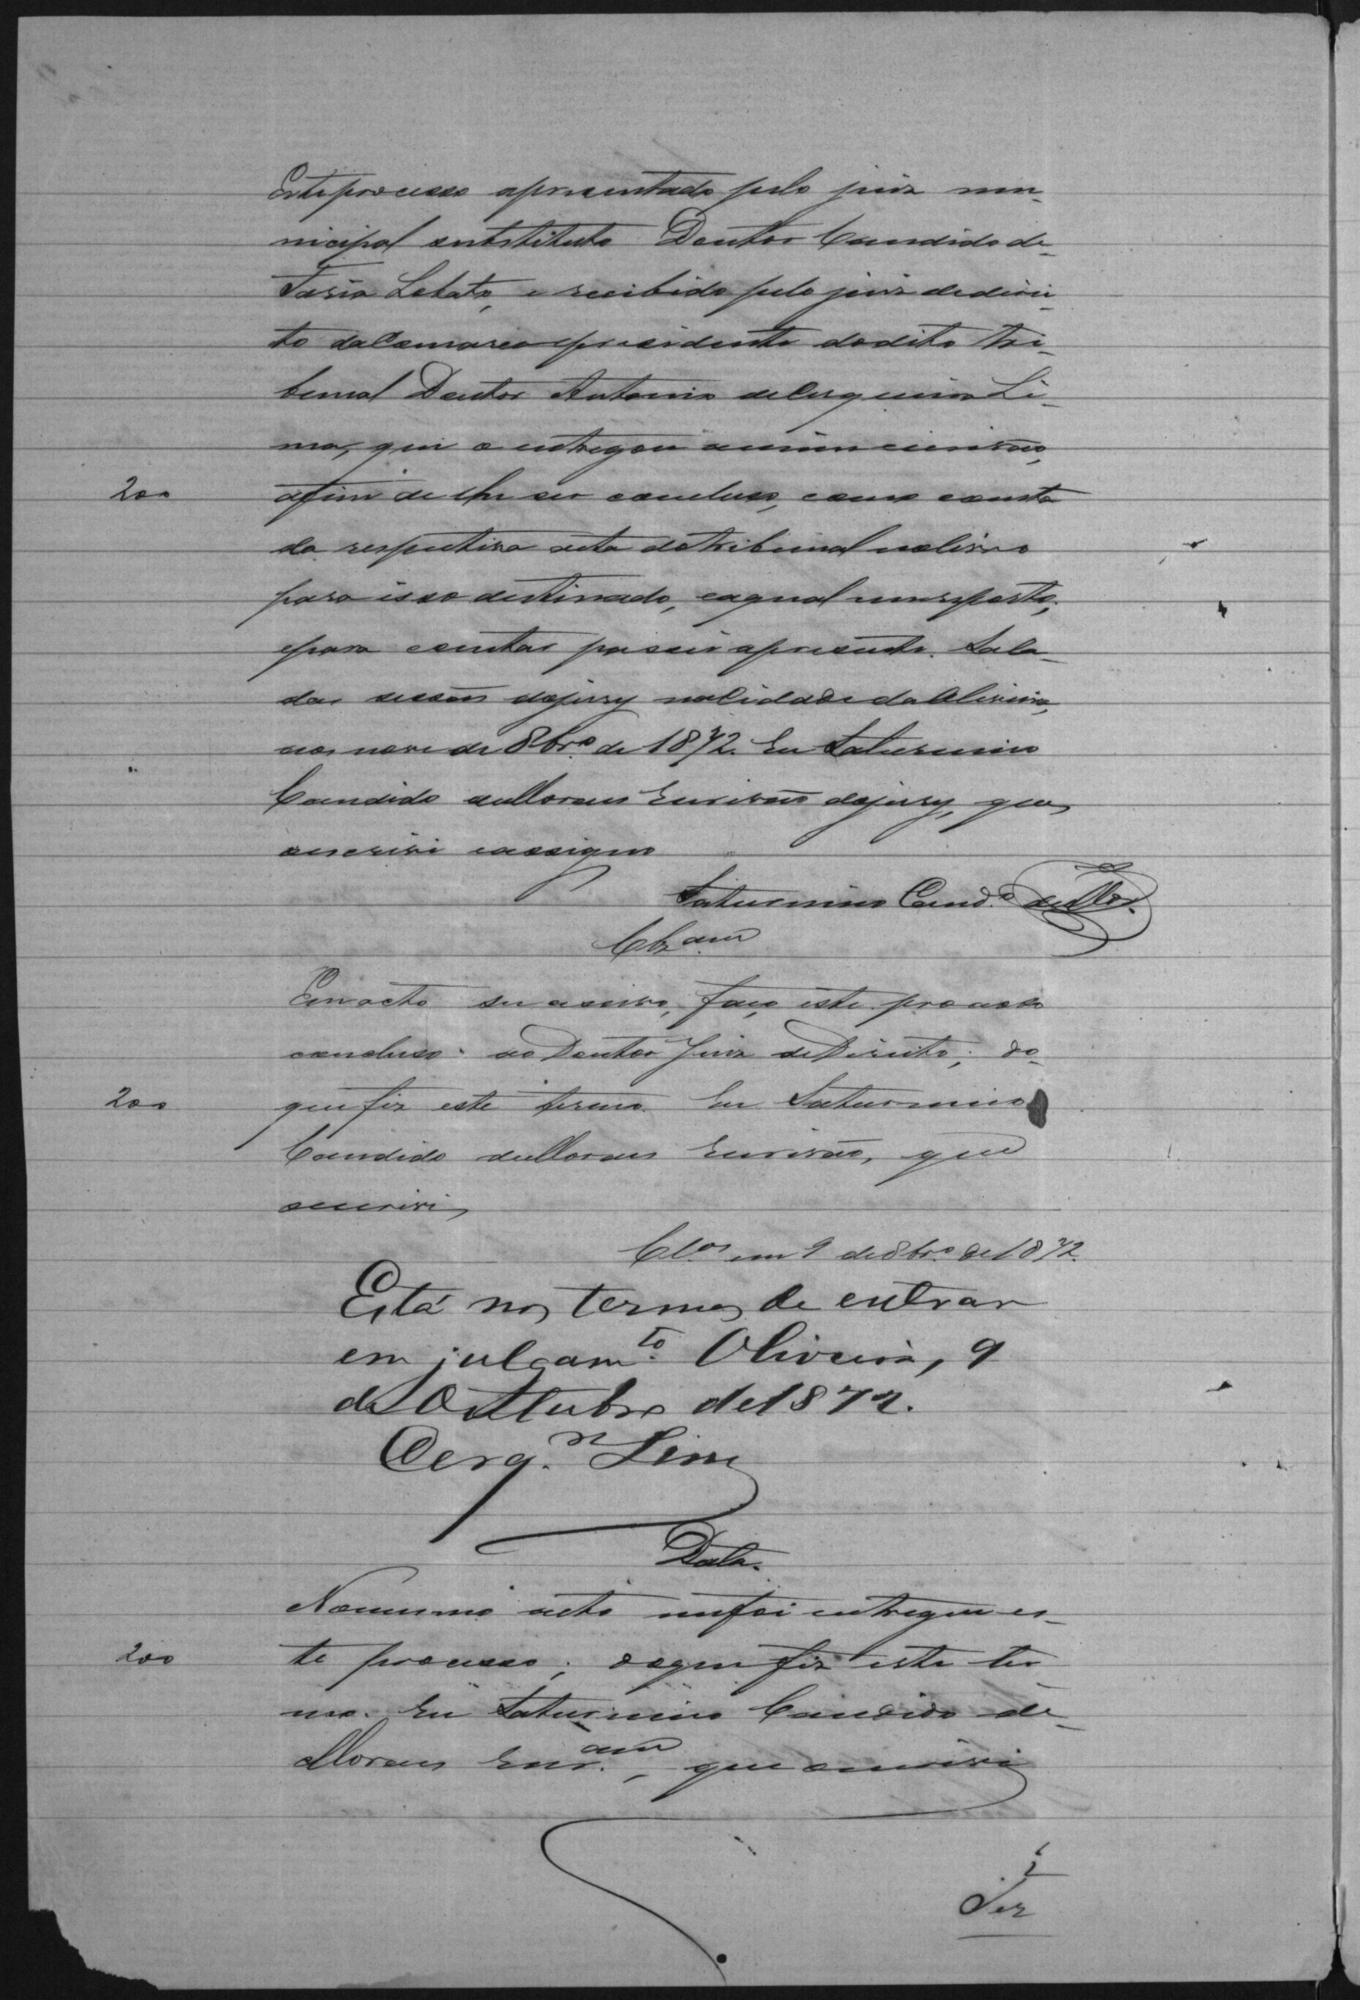 Este processo apresentado pelo juiz mu-
nicipal substituto Doutor Candido de
Faria Lobato, e recibido pelo juiz de direi-
to da Comarca presidente do dito tri-
bunal Doutor Antonio de Cerqueira Li-
ma, que o entregou a mim escrivão,
200
afim de lhe ser concluso, como consta
da respectiva acta do tribunal no livro
para isso destinado, e a qual me reporto,
e para constar passei a presente. Sala
das sessões do jury na Cidade da Oliveira,
aos nove de 8br.o de 1872. Eu Saturnino
Candido de Moraes Escrivão do jury, que
escrivi e assigno
Saturnino Cand.o de Mor.
Clzam
Em acto successivo, faço este processo
concluso ao Doutor Juiz de Direito; do
200
que fiz este termo. Eu Saturnino
Candido de Moraes Escrivão, que
escrivi
Cl.os em 9 de 8br.o de 1872.
Está nos termos de entrar
em julgam.to Oliveira, 9
de Outubro de 1872.
Cerq.ra Lima
Data.
No mesmo acto me foi entregue es-
200
te processo; do que fiz este ter
mo. Eu Saturnino Candido de
Moraes Escr.am, que escrivi
Ter